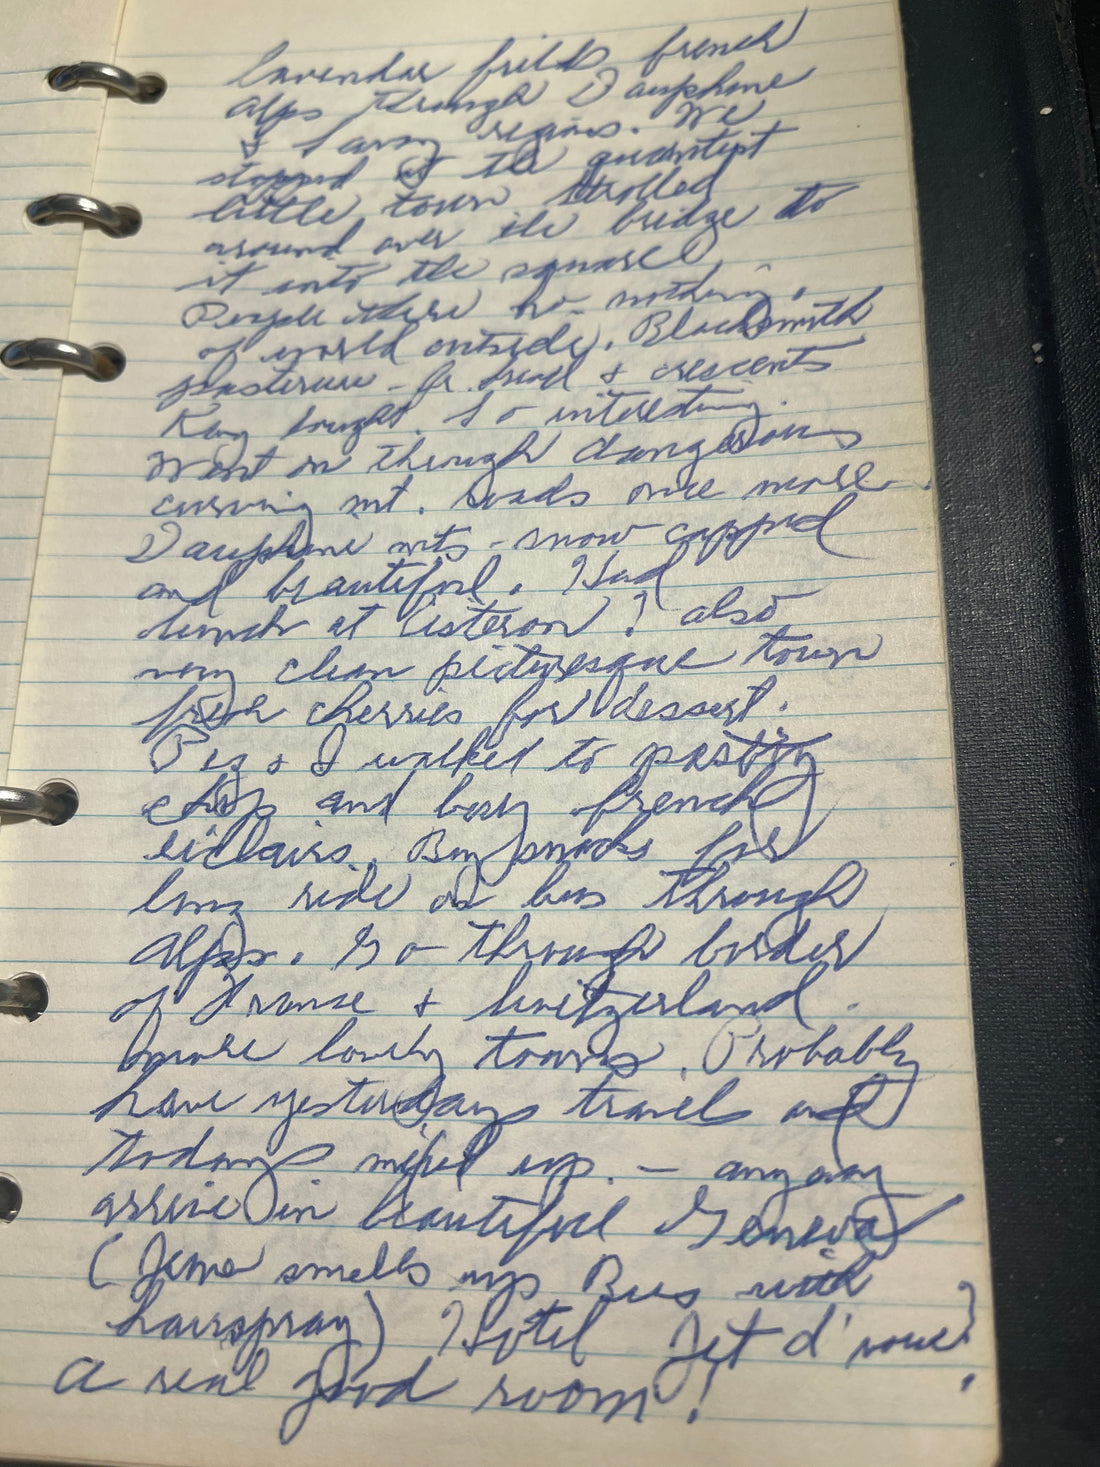 lavendar fields french
alps through Dauphine
& Savoy regions. We
stopped at the quaintest
little town strolled
around over the bridge to
it into the square
People there no nothing
of world outside. Blacksmith
- fr. bread & crescents
Kay bought. So interesting.
Went on through dangerous
curving mt. roads once more
Dauphine mts - snow capped
and beautiful. Had
lunch at Sisteron? also
very clean picturesque town
fresh cherries for dessert.
Peg & I walked to pastry
shop and buy french
eiclairs. Buy snacks for
long ride on bus through
Alps. Go through border
of France & Switzerland.
more lovely towns. Probably
have yesterdays travel and
todays mixed up. - anyway
arrive in beautiful Geneva
( smells up Bus with
hairspray) Hotel Jet d'
a real good room!